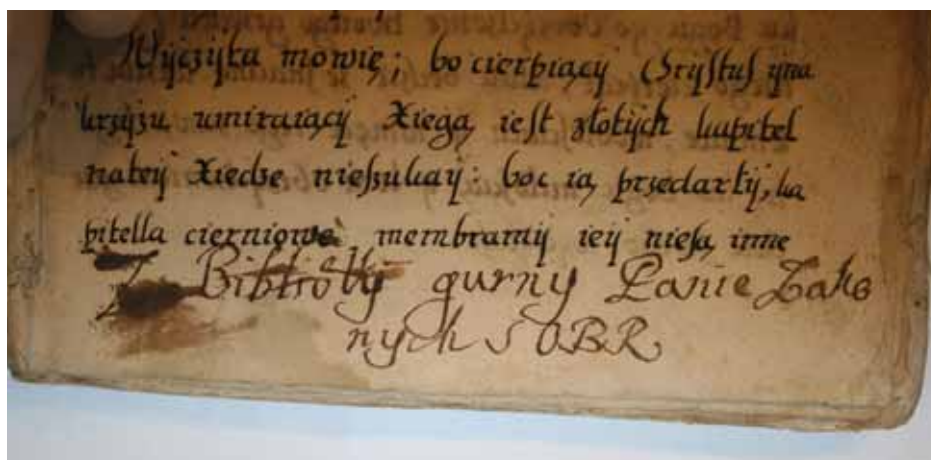 Wyczyka mowię; bo cierpiący Crystus yna
krzyzu umiraiący Xiegą iest złotych kapitel
natey Xiedze nieszukay: boc ią przedarły, ka
pitella cierniowe membramy iey niesą inne
Z Bibliotky gurny Panie Zako
nych S OBR